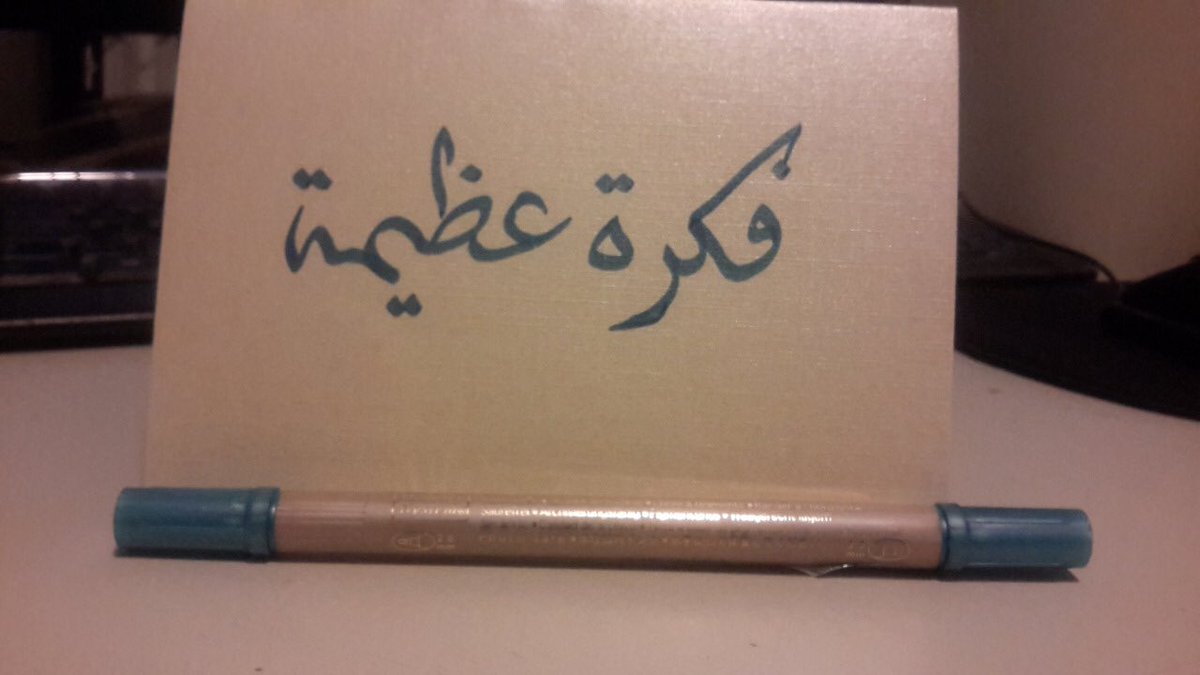 فكرة عظيمة